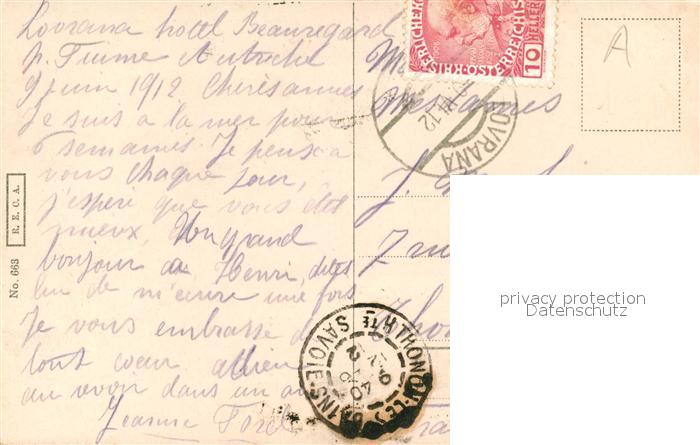 Lovrana hotel Beauregard
p. Fiume Autriche
9 juin 1912 Chères amies
Je suis a la mer pour
6 semaines. Je pense a
vous chaque jour,
j'espère que vous êtes
mieux, Un grand
bonjour a Henri, dites
lui de m'ecrire une fois
Je vous embrasse de
tout coeur
au revoir dans un an
Jeanne
Mesdames
J.
7 rue
Thonon
No. 663 R. E. C. A.
10 HELLER
K·K·OSTERREICHISCHE
LOVRANA
12
THONON-LES-BAINS
HTE SAVOIE
A
privacy protection
Datenschutz